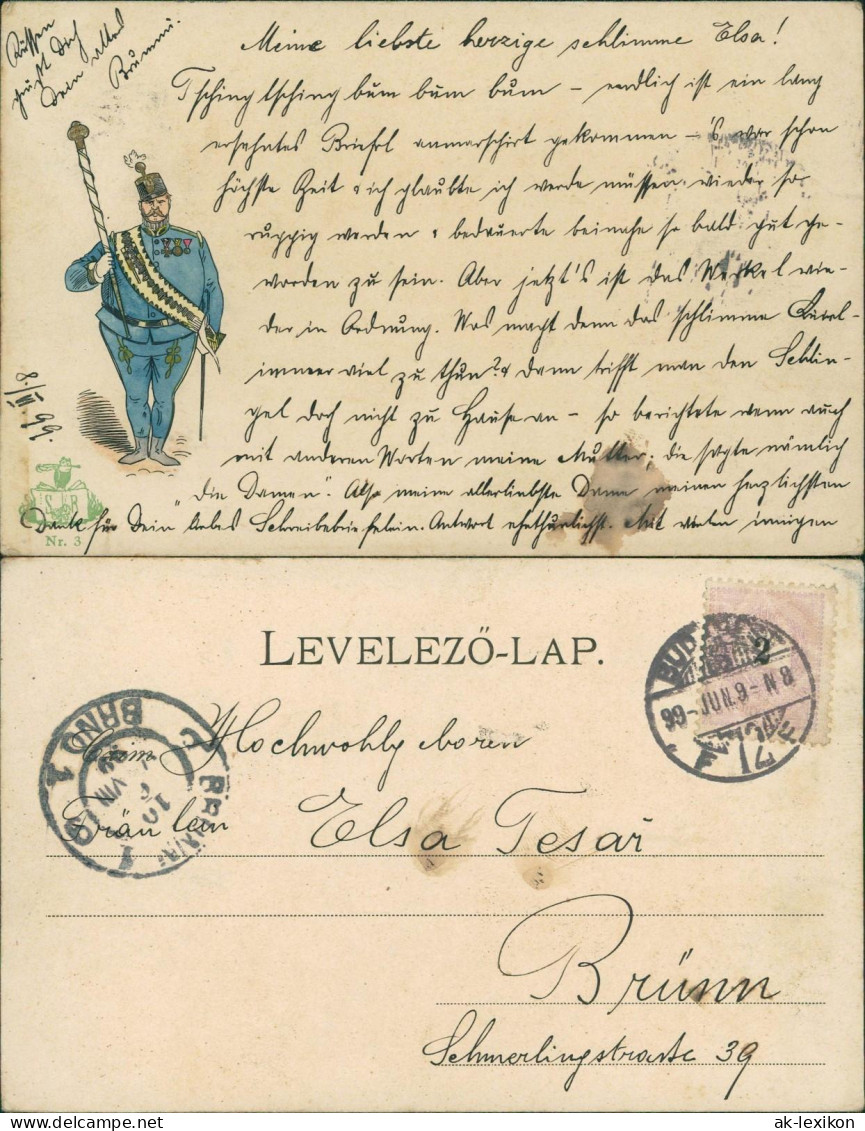 Meine liebste herzige schlimme Elsa!
Tschingtsching bum bum bum – endlich ist ein lang
ersehntes Brieferl anmarschirt gekommen – 's war schon
höchste Zeit & ich glaubte ich werde müssen wieder so
ruppig werden & bedauerte beinahe so bald gut ge-
worden zu sein. Aber jetzt's ist das Werkel wie-
der in Ordnung. Was macht denn das schlimme
immer viel zu thun? & dann trifft man den Schlin-
gel doch nicht zu Hause an – so berichtete wenn auch
mit anderen Worten meine Mutter; die sagte nämlich
"die Damen". Also meine allerliebste Dame meinen herzlichsten
Dank für Dein liebes Schreibebriefelein. Antwort ehethunlichst. Mit vielen innigen
Küssen
grüßt Dich
Dein altes
Brummi.
8./VI 99.
S B
Nr. 3
LEVELEZŐ-LAP.
BUDAPEST
2
71
BRNO 1
BRÜNN 1
Hochwohlgeboren
Fräulein
Elsa Tesař
Brünn
Schmerlingstraße 39
ak-lexikon